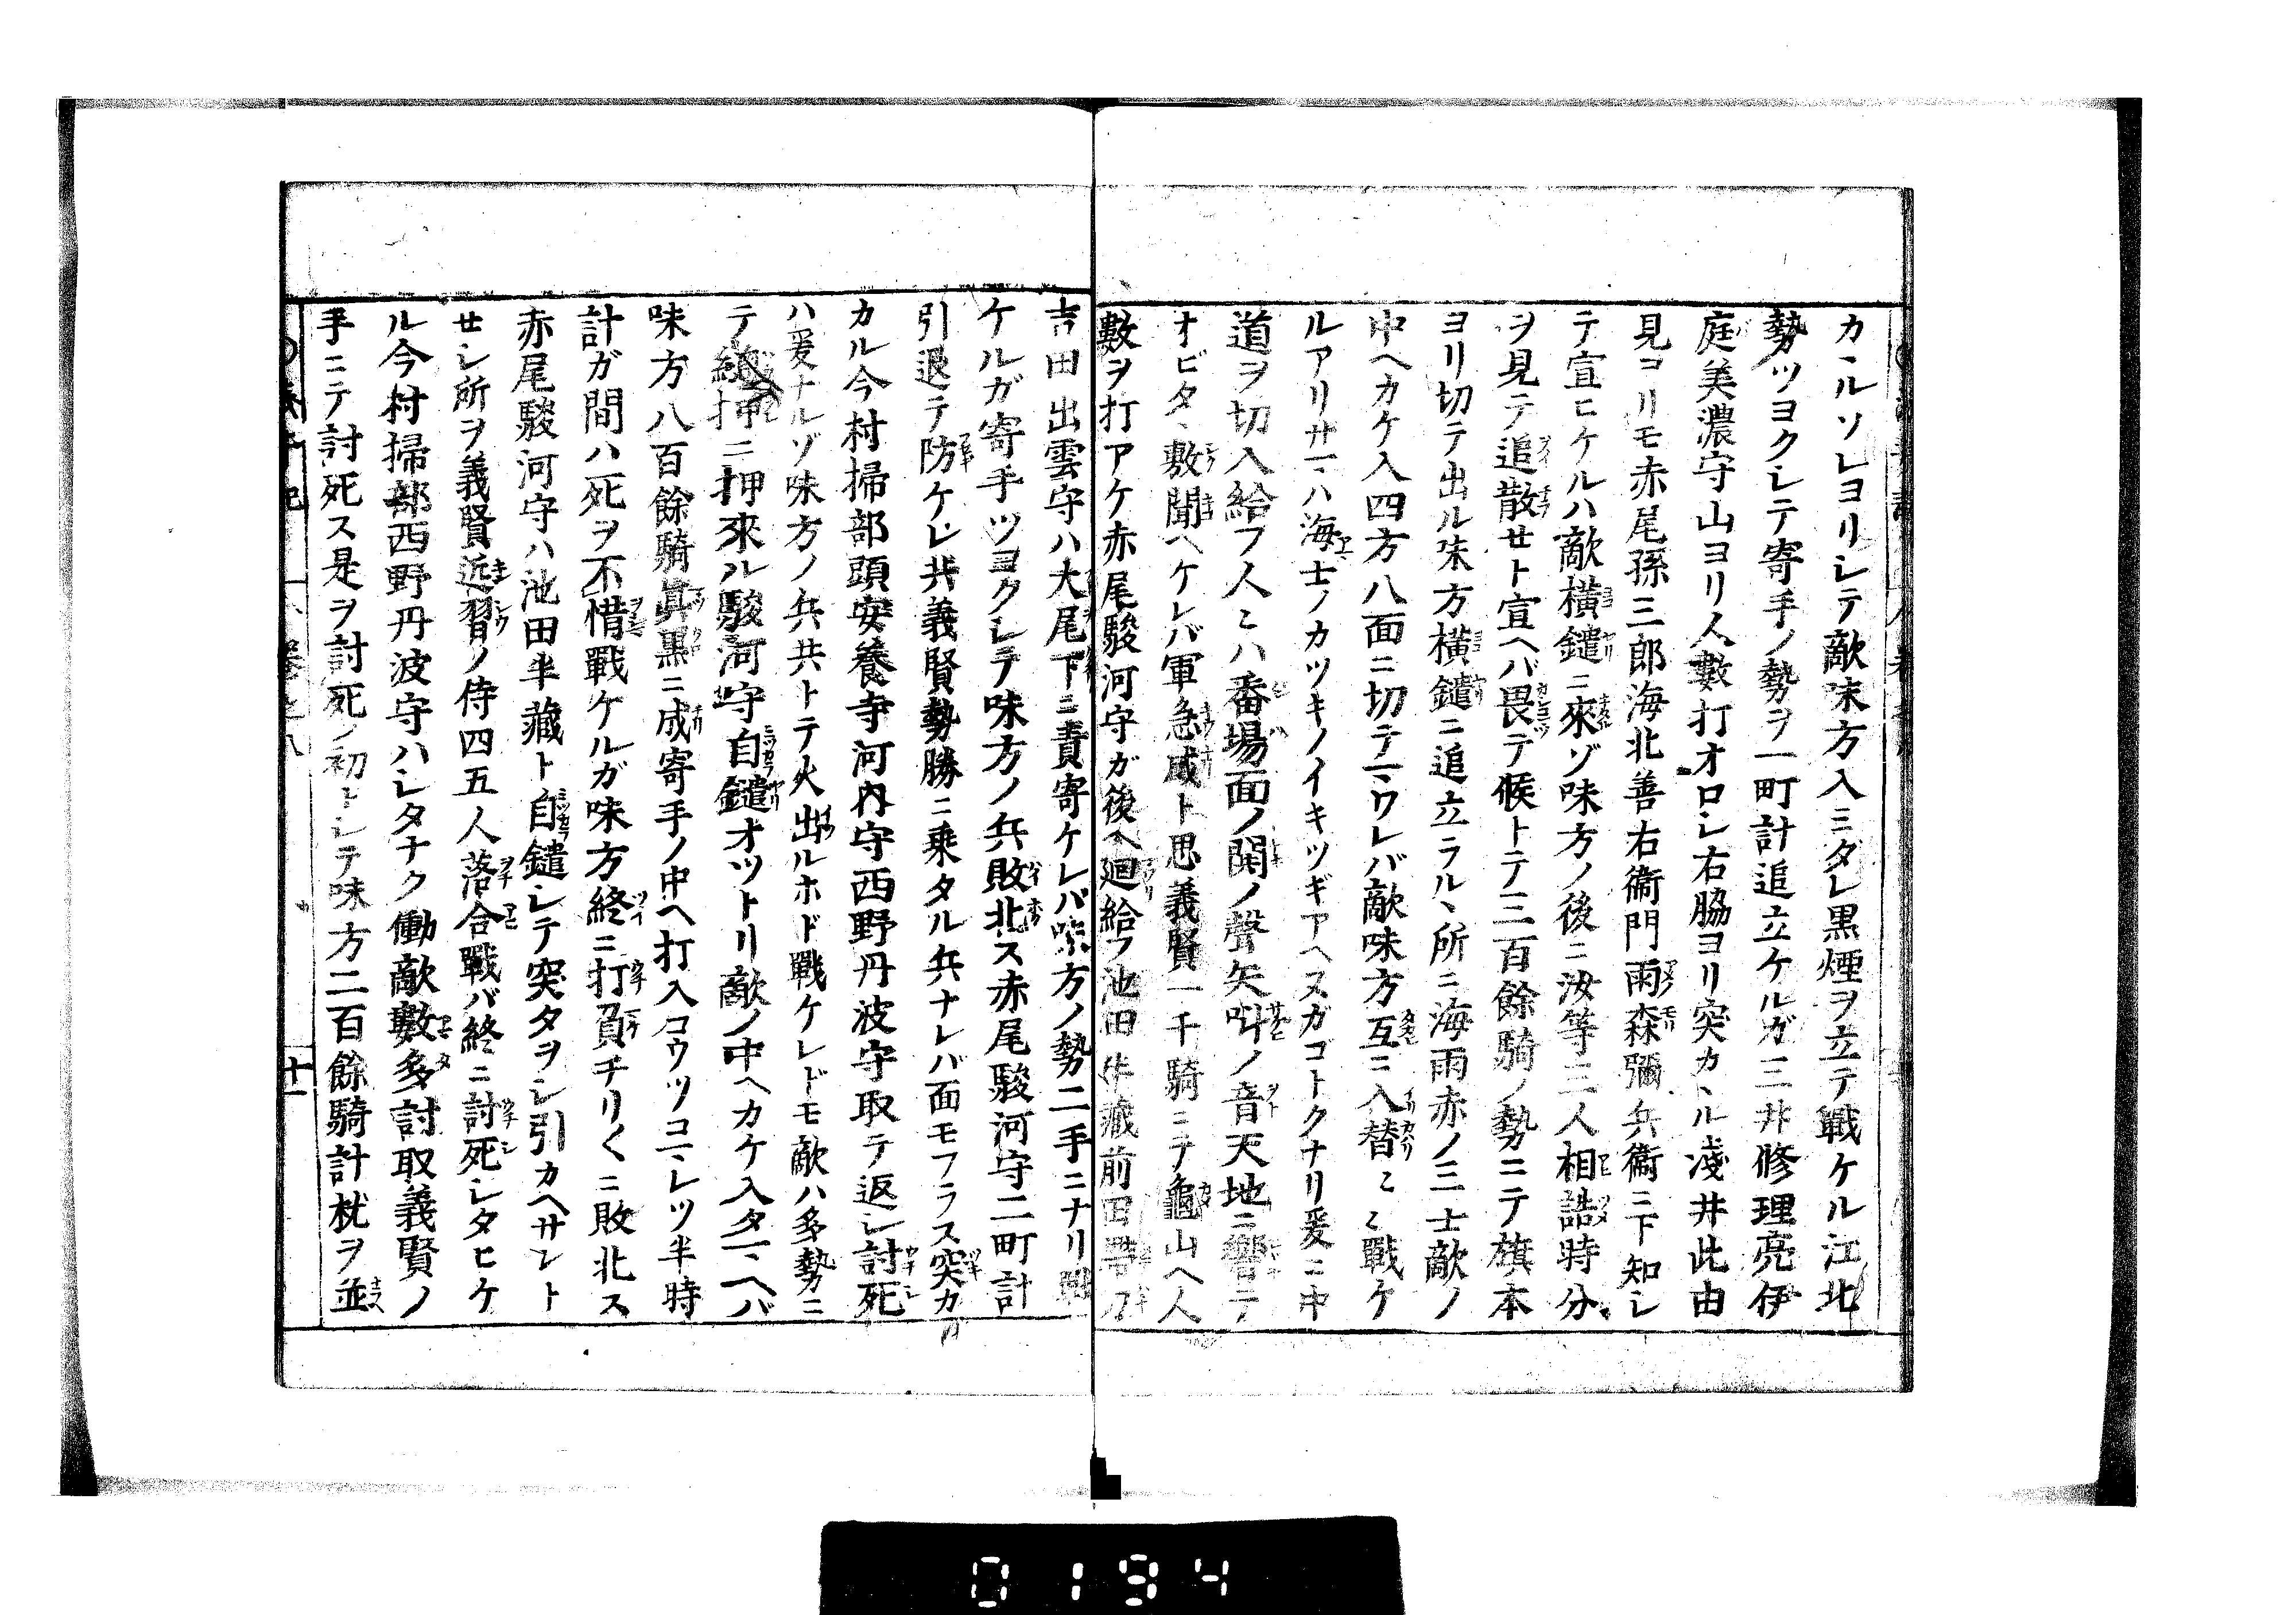 カヽルソレヨリシテ敵味方入ミタレ黒煙ヲ立テ戰ケル江北
勢ツヨクシテ寄手ノ勢ヲ一町計追立ケルガ三井修理亮伊
庭美濃守山ヨリ人數打オロシ右脇ヨリ突カヽル淺井此由
見ヨリモ赤尾孫三郎海北善右衞門雨森彌兵衞ニ下知シ
テ宣ヒケルハ敵横鑓ニ來ゾ味方ノ後ニ汝等三人相詰時分
ヲ見テ追散せト宣ヘバ畏デ候トテ三百餘騎ノ勢ニテ旗本
ヨリ切テ出ル味方横鑓ニ追立ラルヽ所ニ海雨赤ノ三士敵ノ
中ヘカケ入四方八面ニ切テマワレバ敵味方互ニ入替ミミ戰ケ
ルアリサマハ海士ノカツキノイキツギアヘヌガゴトクナリ爰ニ中
道ヲ切入給フ人ミハ番場面ノ鬨ノ聲矢叫ノ音天地ニ響テ
オビタヽ敷聞ヘケレバ軍急成ト思義賢一千騎ニテ龜山ヘ人
數ヲ打アケ赤尾駿河守ガ後ヘ廻給フ池田半藏前田
吉田出雲守ハ大尾下ニ責寄ケレバ味方ノ勢二手ニナリ
ケルガ寄手ツヨクシテ味方ノ兵敗北ス赤尾駿河守二町計
引退テ防ケレ共義賢勢勝ニ乗タル兵ナレバ面モフラス突カ
カル今村掃部頭安養寺河内守西野丹波守取テ返シ討死
ハ爰ナルゾ味方ノ兵共トテ火出ルホド戰ケレドモ敵ハ多勢ニ
テ押ニ押來ル駿河守自鑓オツトリ敵ノ中ヘカケ入タマヘバ
味方八百餘騎眞黒ニ成寄手ノ中ヘ打入コウツコマレツ半時
計ガ間ハ死ヲ不惜戰ケルガ味方終ニ打負チリ〱ニ敗北ス
赤尾駿河守ハ池田半藏ト自鑓シテ突タヲシ引カヘサント
せシ所ヲ義賢近習ノ侍四五人落合戰バ終ニ討死シタヒケ
ル今村掃部西野丹波守ハシタナク働敵數多討取義賢ノ
手ニテ討死ス是ヲ討死ノ初トシテ味方二百餘騎計枕ヲ並
卷之八
十一
0194